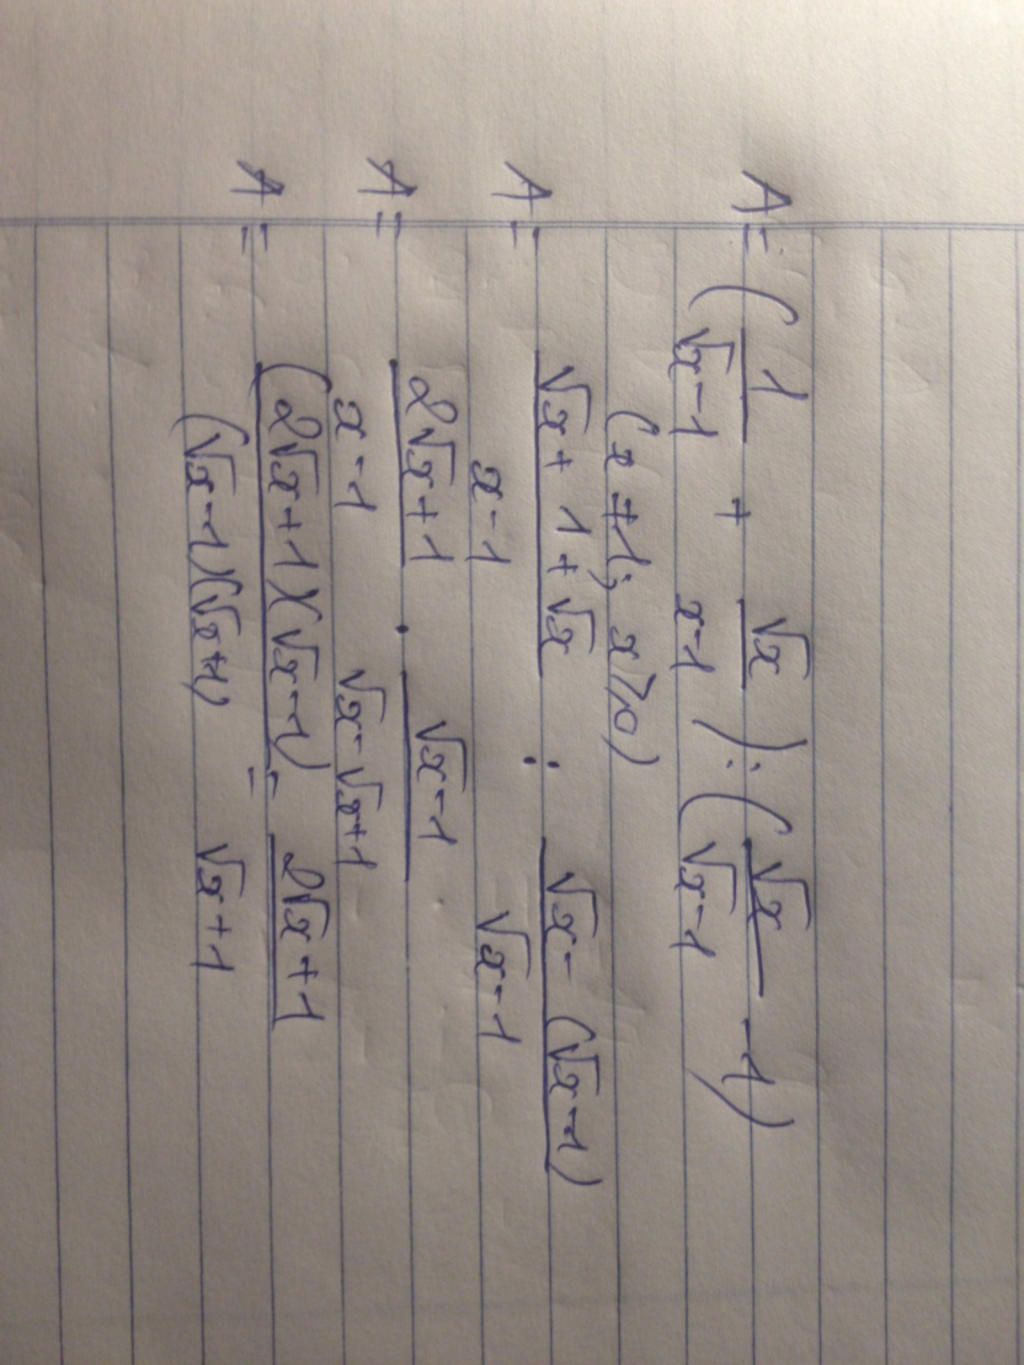 A = ( 1/(√x-1) + √x/(x-1) ) : ( √x/(√x-1) - 1 )
(x ≠ 1; x ⩾ 0)
A = (√x + 1 + √x)/(x-1) : (√x - (√x-1))/(√x-1)
A = (2√x+1)/(x-1) · (√x-1)/(√x-√x+1)
A = (2√x+1)(√x-1)/(√x-1)(√x+1) = (2√x+1)/(√x+1)